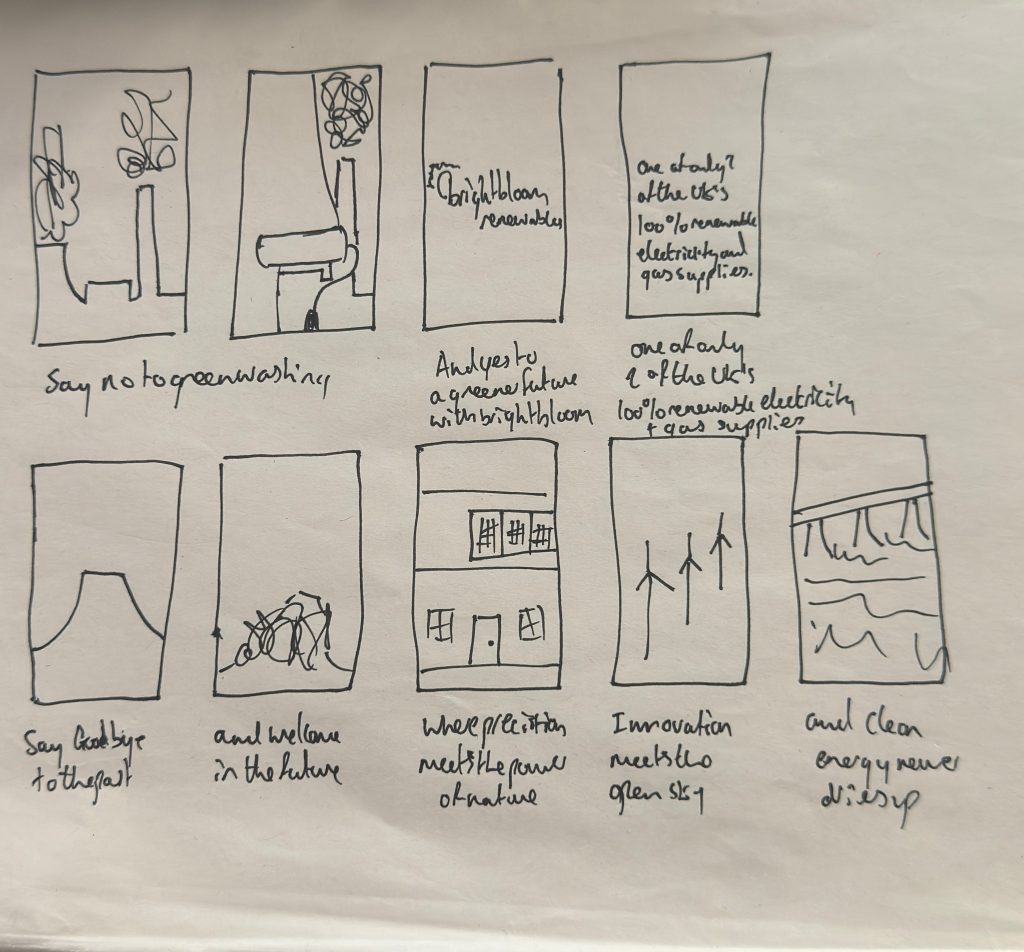 brightbloom
renewables
one of only 9
of the UK's
100% renewable
electricity and
gas supplies.
Say no to greenwashing
And yes to
a greener future
with brightbloom
one of only
9 of the UK's
100% renewable electricity
+ gas supplies
Say Goodbye
to the past
and welcome
in the future
where precision
meets the power
of nature
Innovation
meets the
open sky
and clean
energy never
dries up